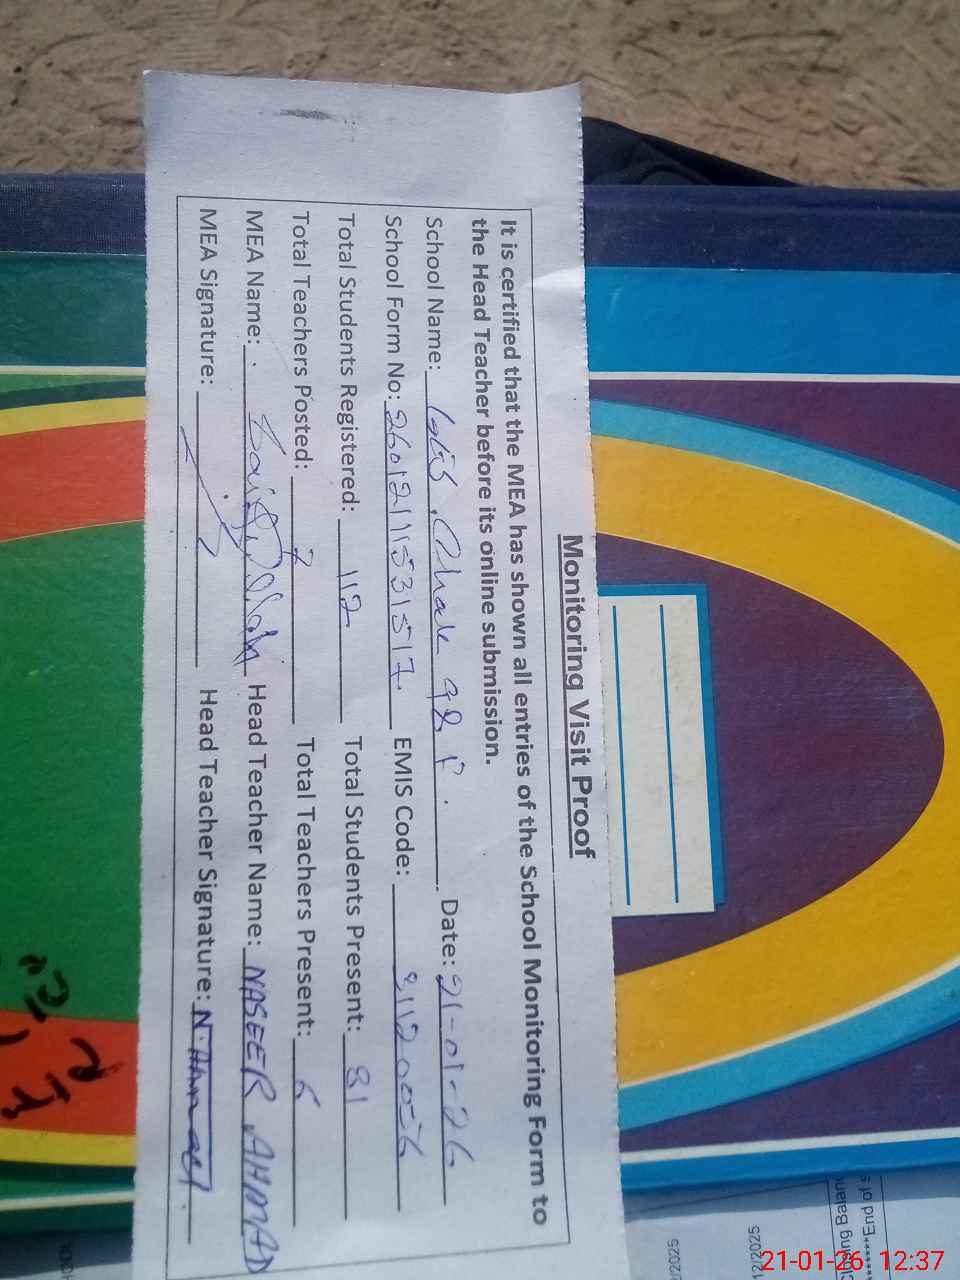 Monitoring Visit Proof
It is certified that the MEA has shown all entries of the School Monitoring Form to
the Head Teacher before its online submission.
School Name: Chak 98 P. Date: 21-01-26
School Form No: 26012111531517. EMIS Code: 31120056
Total Students Registered: 112 Total Students Present: 81
Total Teachers Posted: 7 Total Teachers Present: 6
MEA Name: Head Teacher Name: NASEER AHMAD
MEA Signature: Head Teacher Signature: N. Ahmad
s of End
/2025
21-01-26 12:37